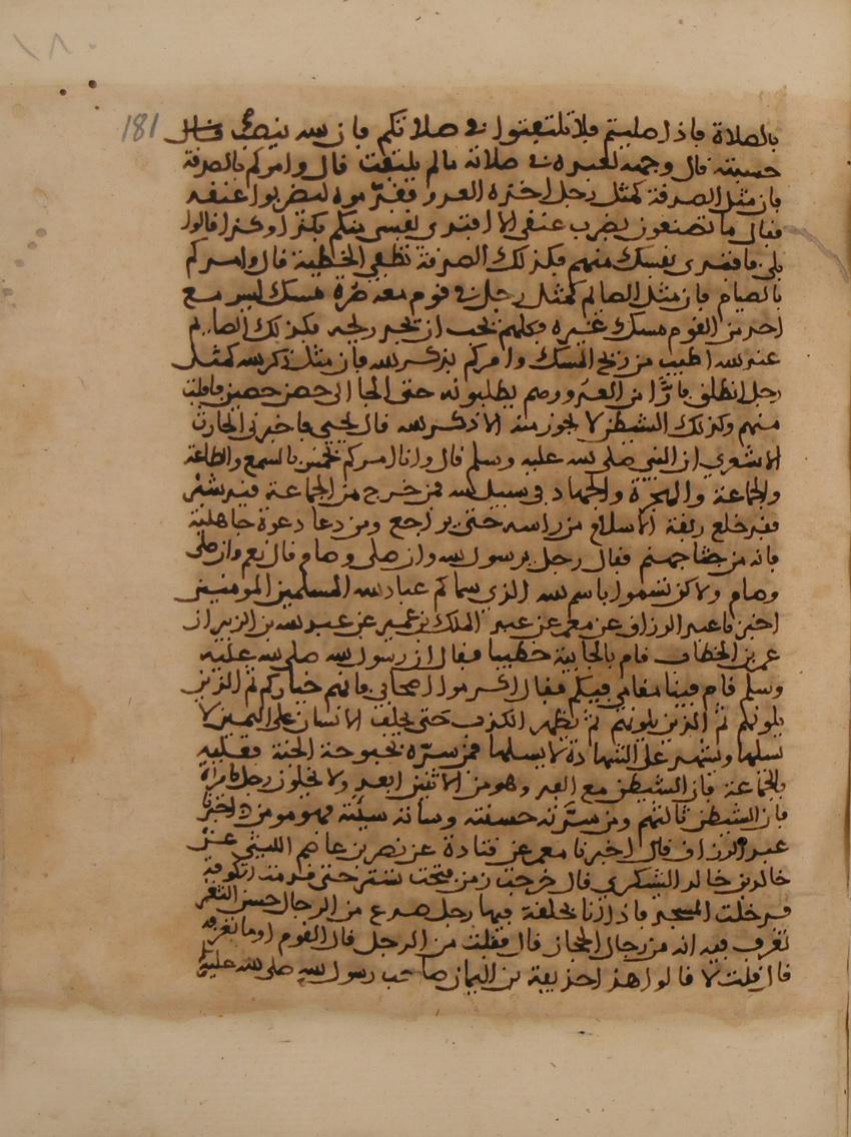 ١٨٠
181
بالصلاة فاذا صليتم فلا تلتفتوا في صلاتكم فان الله ينصب
وجهه لعبده في صلاته مالم يلتفت قال وامركم بالصدقة
فان مثل الصدقة كمثل رجل اخذه العدو فقدموه ليضربوا عنقه
فقال ما تصنعون بضرب عنقي الا افتدي نفسي منكم بكذا وكذا قالوا
بلى فافتدى نفسه منهم فكذلك الصدقة تطفي الخطية قال وامركم
بالصيام فان مثل الصائم كمثل رجل في قوم معه صرة مسك ليس مع
احد من القوم مسك غيره فكلهم يحب ان يجد ريحه فكذلك الصائم
عند الله اطيب من ريح المسك وامركم بذكر الله فان مثل ذكر الله كمثل
رجل انطلق فارا من العدو وهم يطلبونه حتى لجا الى حصن حصين فافلت
منهم وكذلك الشيطن لا يحرز منه الا ذكر الله قال يحيى فاخبرني الحارث
الاشعري ان النبي صلى الله عليه وسلم قال وانا امركم بخمس بالسمع والطاعة
والجماعة والهجرة والجهاد في سبيل الله فمن خرج من الجماعة قيد شبر
فقد خلع ربقة الاسلام من راسه حتى يراجع ومن دعا دعوة جاهلية
فانه من جثا جهنم فقال رجل يرسول الله وان صلى وصام قال نعم وان صلى
وصام ولاكن تسموا باسم الله الذي سماكم عباد الله المسلمين المومنين
اخبرنا عبد الرزاق عن معمر عن عبد الملك بن عمير عن عبد الله بن الزبير ان
عمر بن الخطاب قام بالجابية خطيبا فقال ان رسول الله صلى الله عليه
وسلم قام فينا مقامي فيكم فقال اكرموا اصحابي فانهم خياركم ثم الذين
يلونهم ثم الذين يلونهم ثم يظهر الكذب حتى يحلف الانسان على اليمين لا
يسلها ويشهد على الشهادة لا يسلها فمن سره بحبوحة الجنة فعليه
بالجماعة فان الشيطن مع الفذ وهو من الاثنين ابعد ولا يخلون رجل بامراة
فان الشيطن ثالثهم ومن سرته حسنته وساته سيئته فهو مومن اخبرنا
عبد الرزاق قال اخبرنا معمر عن قتادة عن نصر بن عاصم الليثي عن
خالد بن خالد اليشكري قال خرجت زمن فتحت تستر حتى قدمت الكوفة
فدخلت المسجد فاذا انا بحلقة فيها رجل صدع من الرجال حسن الثغر
تعرف فيه انه من رجال الحجاز قال فقلت من الرجل قال القوم اوما تعرفه
قال قلت لا قالوا هذا حذيفة بن اليمان صاحب رسول الله صلى الله عليه